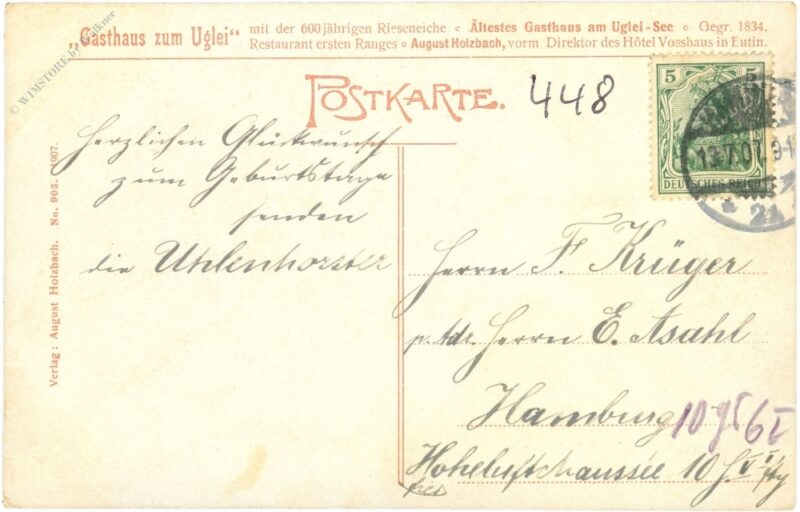 „Gasthaus zum Uglei“ mit der 600jährigen Rieseneiche ∘ Ältestes Gasthaus am Uglei-See ∘ Gegr. 1834.
Restaurant ersten Ranges ∘ August Holzbach, vorm. Direktor des Hôtel Vosshaus in Eutin.
POSTKARTE.
448
5 5
DEUTSCHES REICH
13.7.07
Herzlichen Glückwunsch
zum Geburtstage
senden
die Uhlenhorster
Herrn F. Krüger
p. Adr. Herrn E. Asahl
Hamburg
Hoheluftchaussée 10
Verlag: August Holzbach. No. 903. 1907.
© WIMSTORE by Falkner